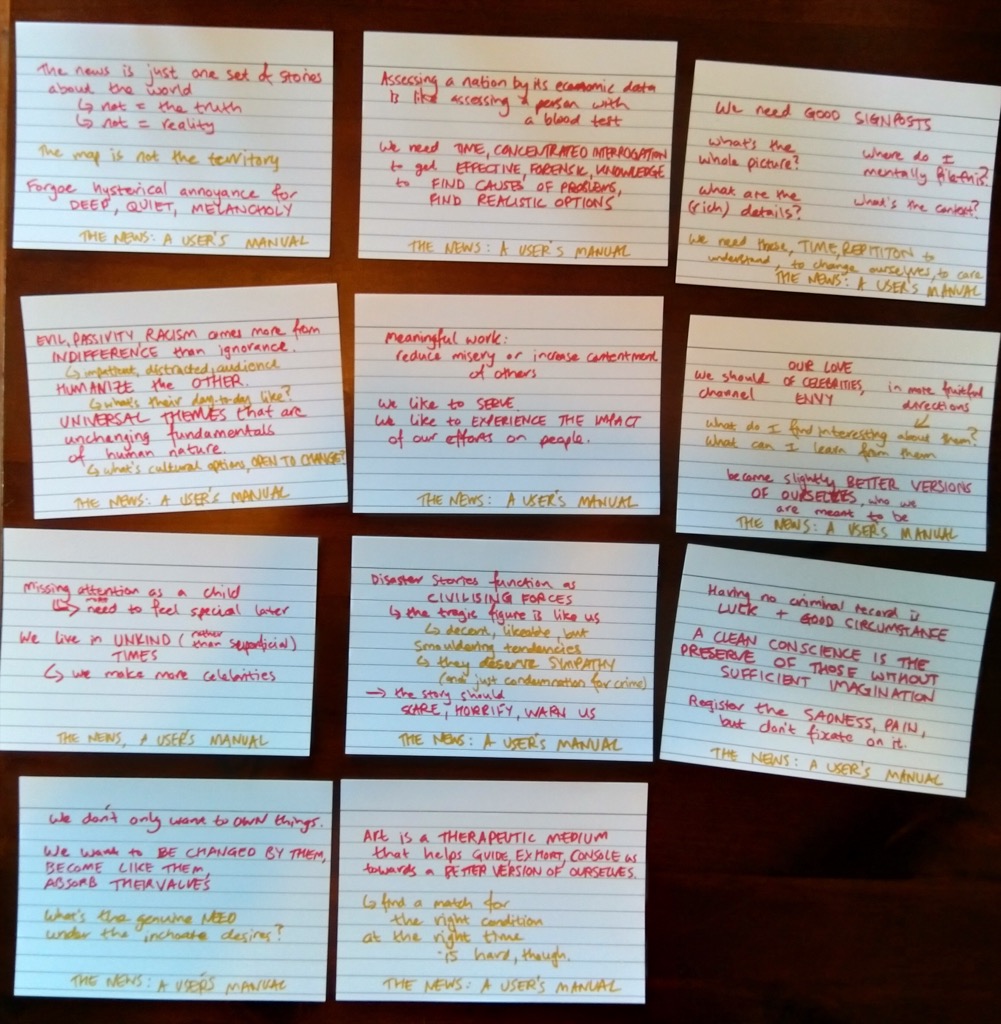 The news is just one set of stories
about the world
↳ not = the truth
↳ not = reality
The map is not the territory
Forgoe hysterical annoyance for
DEEP, QUIET, MELANCHOLY
THE NEWS: A USER'S MANUAL
Assessing a nation by its economic data
is like assessing a person with
a blood test
We need TIME, CONCENTRATED INTERROGATION
to get EFFECTIVE, FORENSIC, KNOWLEDGE
to FIND CAUSES OF PROBLEMS,
FIND REALISTIC OPTIONS
THE NEWS: A USER'S MANUAL
We need GOOD SIGNPOSTS
What's the
whole picture?
Where do I
mentally file this?
What are the
(rich) details?
What's the context?
We need these, TIME, REPITITON to
understand, to change ourselves, to care
THE NEWS: A USER'S MANUAL
EVIL, PASSIVITY RACISM comes more from
INDIFFERENCE than ignorance.
↳ impatient, distracted, audience
HUMANIZE the OTHER.
↳ what's their day-to-day like?
UNIVERSAL THEMES that are
unchanging fundamentals
of human nature.
↳ what's cultural options, OPEN TO CHANGE?
THE NEWS: A USER'S MANUAL
Meaningful work:
reduce misery or increase contentment
of others
We like to SERVE.
We like to EXPERIENCE THE IMPACT
of our efforts on people.
THE NEWS: A USER'S MANUAL
OUR LOVE
We should OF CELEBRITIES, in more fruitful
channel ENVY directions
What do I find interesting about them?
What can I learn from them
become slightly BETTER VERSIONS
OF OURSELVES, who we
are meant to be
THE NEWS: A USER'S MANUAL
Missing attention as a child
↳ need to feel special later
We live in UNKIND (rather
than superficial)
TIMES
↳ we make more celebrities
THE NEWS, A USER'S MANUAL
Disaster stories function as
CIVILISING FORCES
↳ the tragic figure is like us
↳ decent, likeable, but
smouldering tendencies
↳ they deserve SYMPATHY
(and just condemnation for crime)
→ the story should
SCARE, HORRIFY, WARN US
THE NEWS: A USER'S MANUAL
Having no criminal record is
LUCK + GOOD CIRCUMSTANCE
A CLEAN CONSCIENCE IS THE
PRESERVE OF THOSE WITHOUT
SUFFICIENT IMAGINATION
Register the SADNESS, PAIN,
but don't fixate on it.
THE NEWS: A USER'S MANUAL
We don't only want to OWN things.
We want to BE CHANGED BY THEM,
BECOME LIKE THEM,
ABSORB THEIR VALUES
What's the genuine NEED
under the inchoate desires?
THE NEWS: A USER'S MANUAL
Art is a THERAPEUTIC MEDIUM
that helps GUIDE, EXHORT, CONSOLE us
towards a BETTER VERSION OF OURSELVES.
↳ find a match for
the right condition
at the right time
is hard, though.
THE NEWS: A USER'S MANUAL